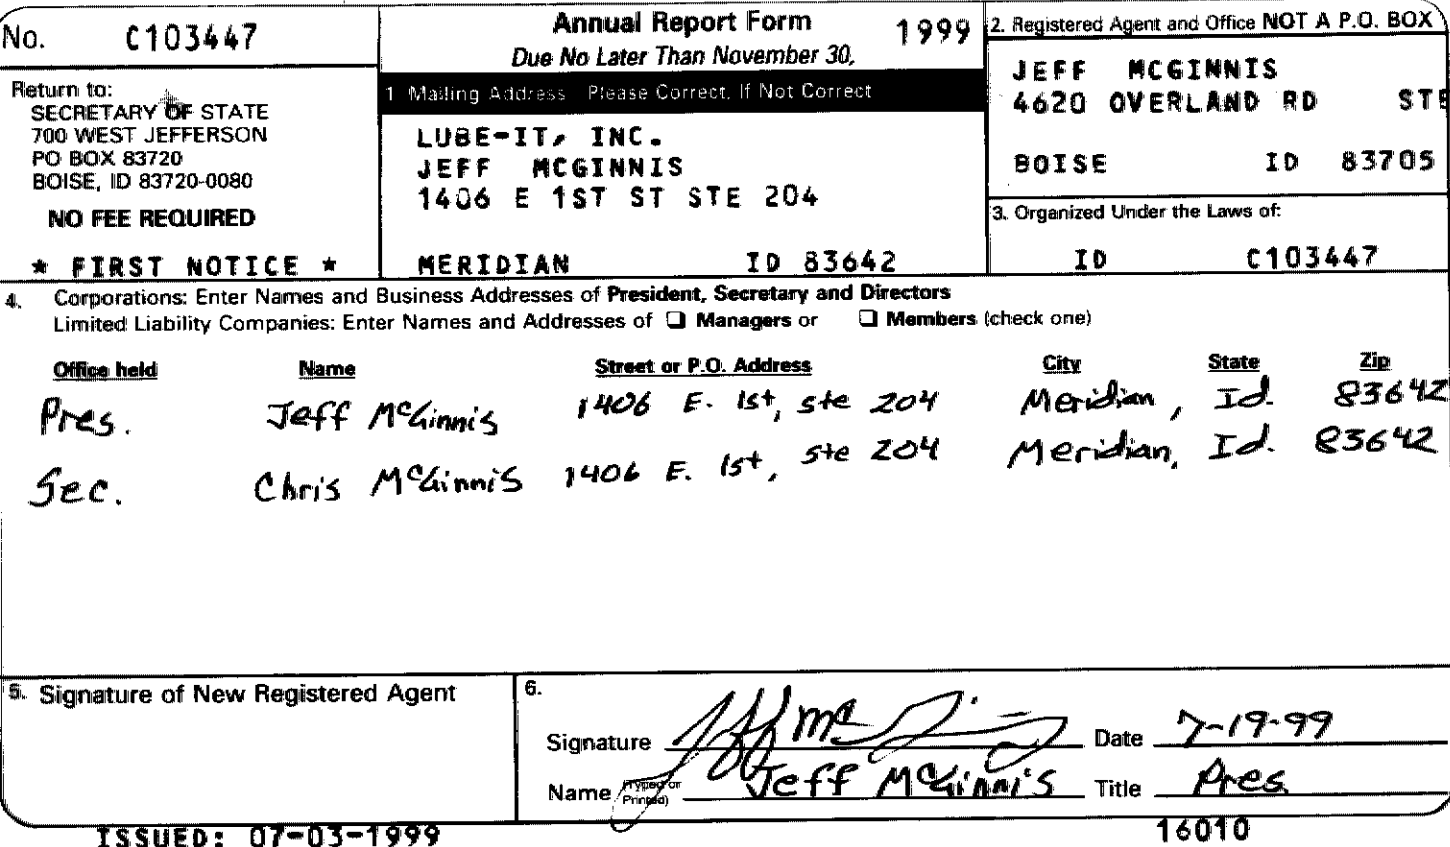 No. C103447
Return to:
SECRETARY OF STATE
700 WEST JEFFERSON
PO BOX 83720
BOISE, ID 83720-0080
NO FEE REQUIRED
* FIRST NOTICE *
Annual Report Form 1999
Due No Later Than November 30,
1 Mailing Address Please Correct, If Not Correct
LUBE-IT, INC.
JEFF MCGINNIS
1406 E 1ST ST STE 204
MERIDIAN ID 83642
2. Registered Agent and Office NOT A P.O. BOX
JEFF MCGINNIS
4620 OVERLAND RD STE
BOISE ID 83705
3. Organized Under the Laws of:
ID C103447
4. Corporations: Enter Names and Business Addresses of President, Secretary and Directors
Limited Liability Companies: Enter Names and Addresses of ❑ Managers or ❑ Members (check one)
Office held Name Street or P.O. Address City State Zip
Pres. Jeff McGinnis 1406 E. 1st, ste 204 Meridian, Id. 83642
Sec. Chris McGinnis 1406 E. 1st, ste 204 Meridian, Id. 83642
5. Signature of New Registered Agent
6.
Signature Jeff McGinnis Date 7-19-99
Name (Typed or Printed) Jeff McGinnis Title Pres
ISSUED: 07-03-1999
16010